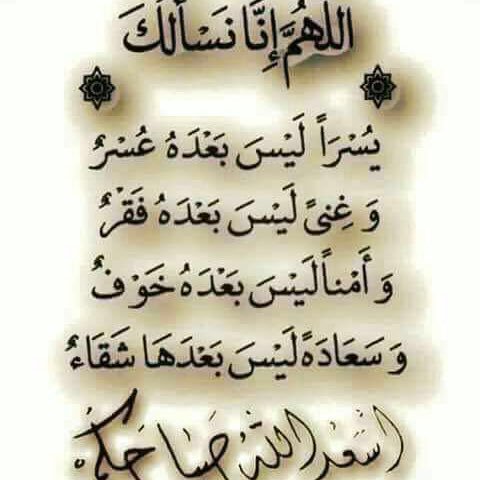 اللَّهُمَّ إِنَّا نَسْأَلُكَ
يُسْرَاً لَيْسَ بَعْدَهُ عُسْرٌ
وَ غِنىً لَيْسَ بَعْدَهُ فَقْرٌ
وَ أَمْناً لَيْسَ بَعْدَهُ خَوْفٌ
وَ سَعَادَةً لَيْسَ بَعْدَهَا شَقَاءٌ
اسعد الله صباحكم